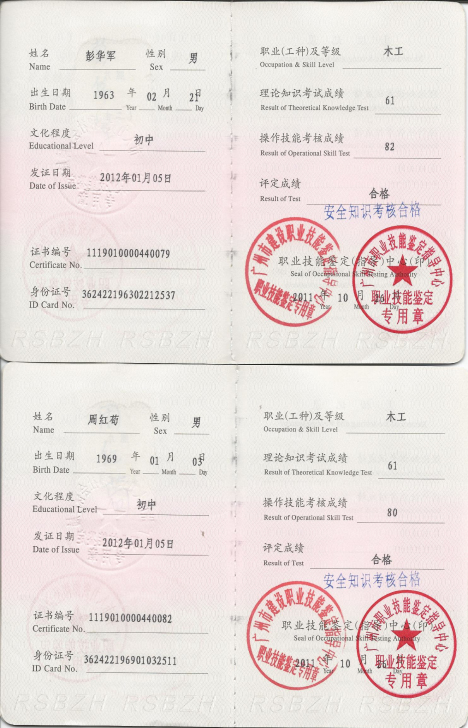 姓名 彭华军 性别 男
Name Sex
出生日期 1963 年 02 月 21日
Birth Date Year Month Day
文化程度 初中
Educational Level
发证日期 2012年01月05日
Date of Issue
证书编号 1119010000440079
Certificate No.
身份证号 362422196302212537
ID Card No.
职业(工种)及等级 木工
Occupation & Skill Level
理论知识考试成绩 61
Result of Theoretical Knowledge Test
操作技能考核成绩 82
Result of Operational Skill Test
评定成绩 合格
Result of Test
安全知识考核合格
职业技能鉴定(指导)中心(印)
Seal of Occupational Skill Testing Authority
2011 年 10 月
Year Month
广州市建设职业技能鉴定指导中心
职业技能鉴定专用章
广州市职业技能鉴定指导中心
职业技能鉴定
专用章
RSBZH RSBZH
姓名 周红苟 性别 男
Name Sex
出生日期 1969 年 01 月 03日
Birth Date Year Month Day
文化程度 初中
Educational Level
发证日期 2012年01月05日
Date of Issue
证书编号 1119010000440082
Certificate No.
身份证号 362422196901032511
ID Card No.
职业(工种)及等级 木工
Occupation & Skill Level
理论知识考试成绩 61
Result of Theoretical Knowledge Test
操作技能考核成绩 80
Result of Operational Skill Test
评定成绩 合格
Result of Test
安全知识考核合格
职业技能鉴定(指导)中心(印)
Seal of Occupational Skill Testing Authority
2011 年 10 月
Year Month
广州市建设职业技能鉴定指导中心
职业技能鉴定专用章
广州市职业技能鉴定指导中心
职业技能鉴定
专用章
RSBZH RSBZH